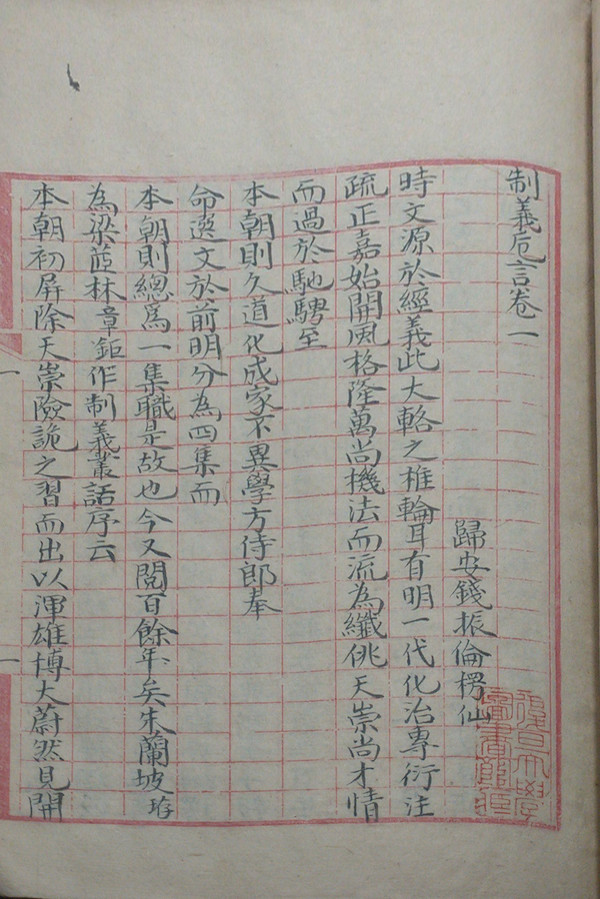 制義卮言卷一
歸安錢振倫楞仙
時文源於經義此大輅之椎輪耳有明一代化治專衍注
疏正嘉始開風格隆萬尚機法而流為纖佻天崇尚才情
而過於馳騁至
本朝則久道化成家不異學方侍郎奉
命選文於前明分為四集而
本朝則總為一集職是故也今又閱百餘年矣朱蘭坡珔
為梁茝林章鉅作制義叢話序云
本朝初屏除天崇險詭之習而出以渾雄博大蔚然見開
復旦大學
圖書館藏